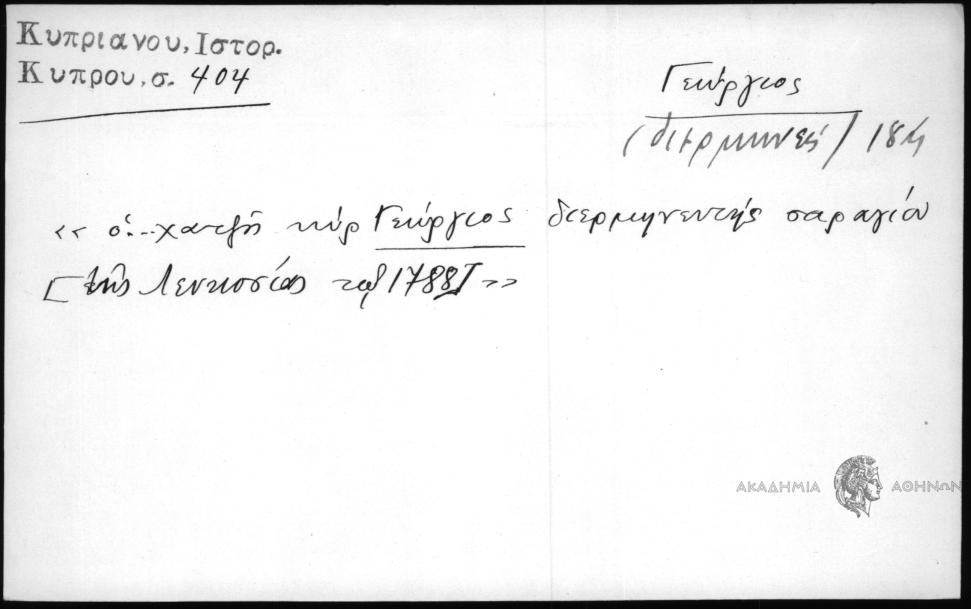 Κυπριανου, Ιστορ.
Κυπρου, σ. 404
Γεώργιος
(διερμηνεύς)
« ὁ...χατζῆ κὺρ Γεώργιος διερμηνευτὴς σαραγίου
[τῆς Λευκοσίας τῷ 1788] »
ΑΚΑΔΗΜΙΑ ΑΘΗΝΩΝ